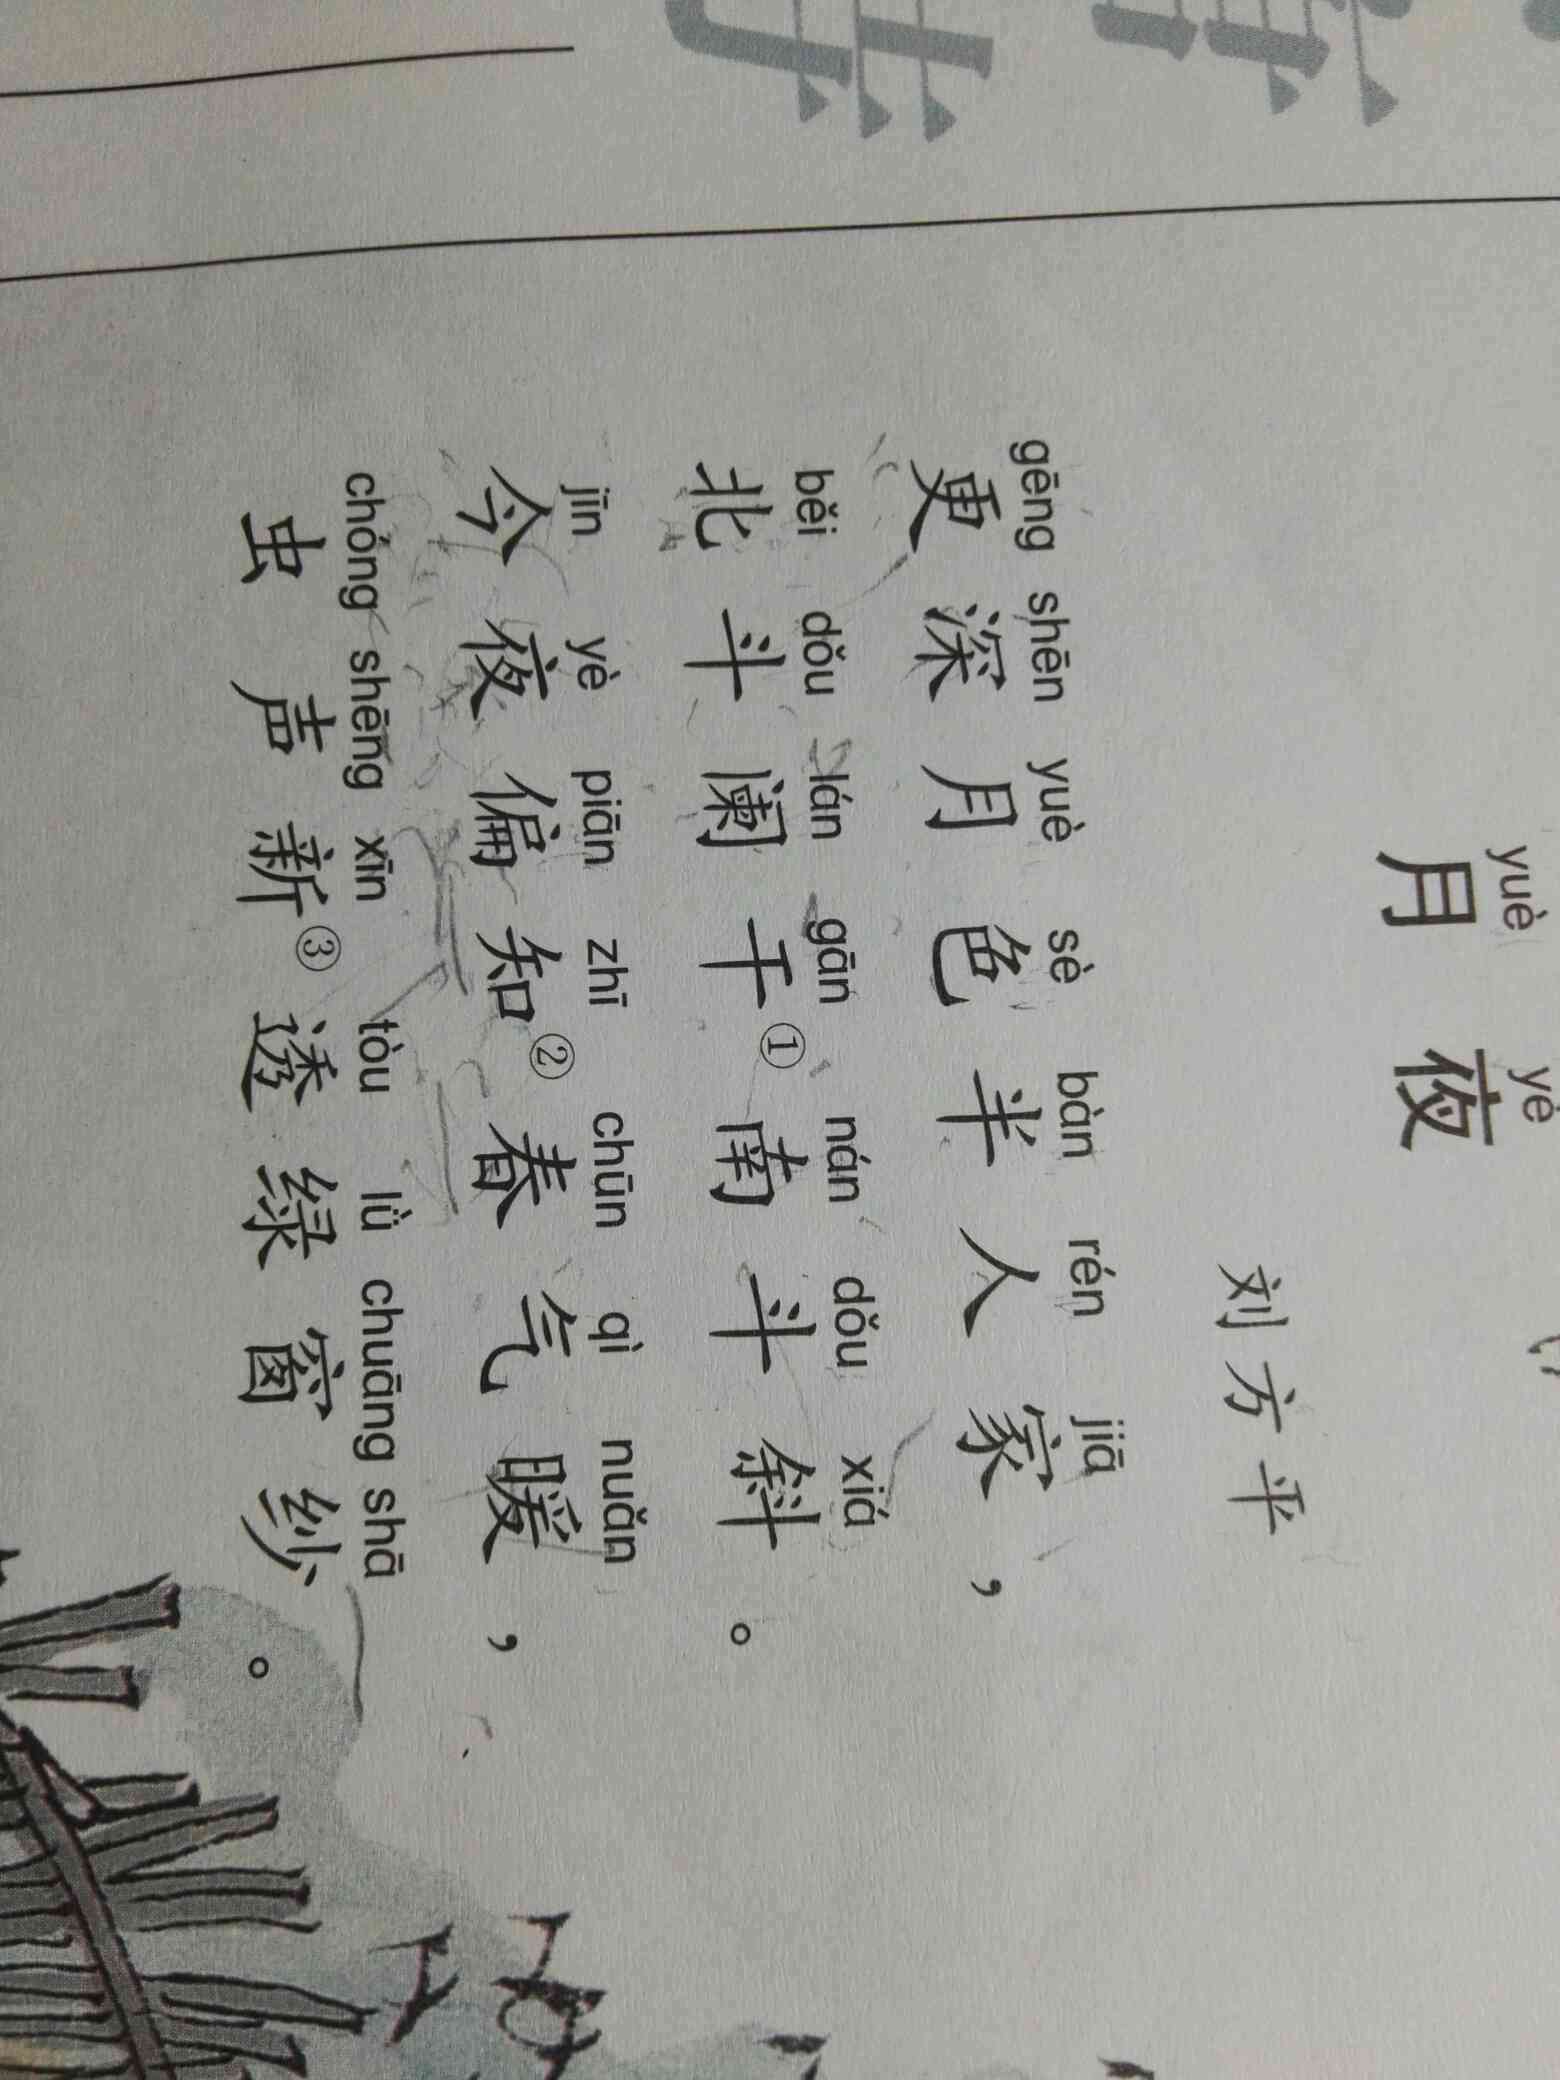 yuè yè
月夜
刘方平
gēng shēn yuè sè bàn rén jiā
更深月色半人家，
běi dǒu lán gān nán dǒu xiá
北斗阑干①南斗斜。
jīn yè piān zhī chūn qì nuǎn
今夜偏知②春气暖，
chóng shēng xīn tòu lǜ chuāng shā
虫声新③透绿窗纱。